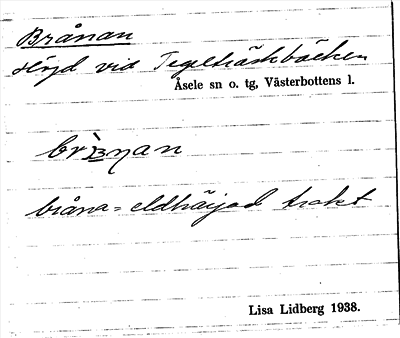 Brånan
höjd vid Tegelträskbäcken
Åsele sn o. tg, Västerbottens l.
bråna = eldhärjad trakt
Lisa Lidberg 1938.